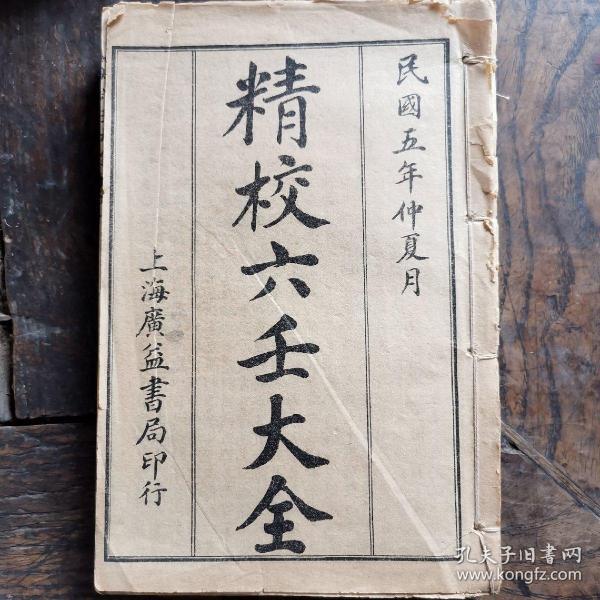 民國五年仲夏月
精校六壬大全
上海廣益書局印行
孔夫子旧书网
www.kongfz.com